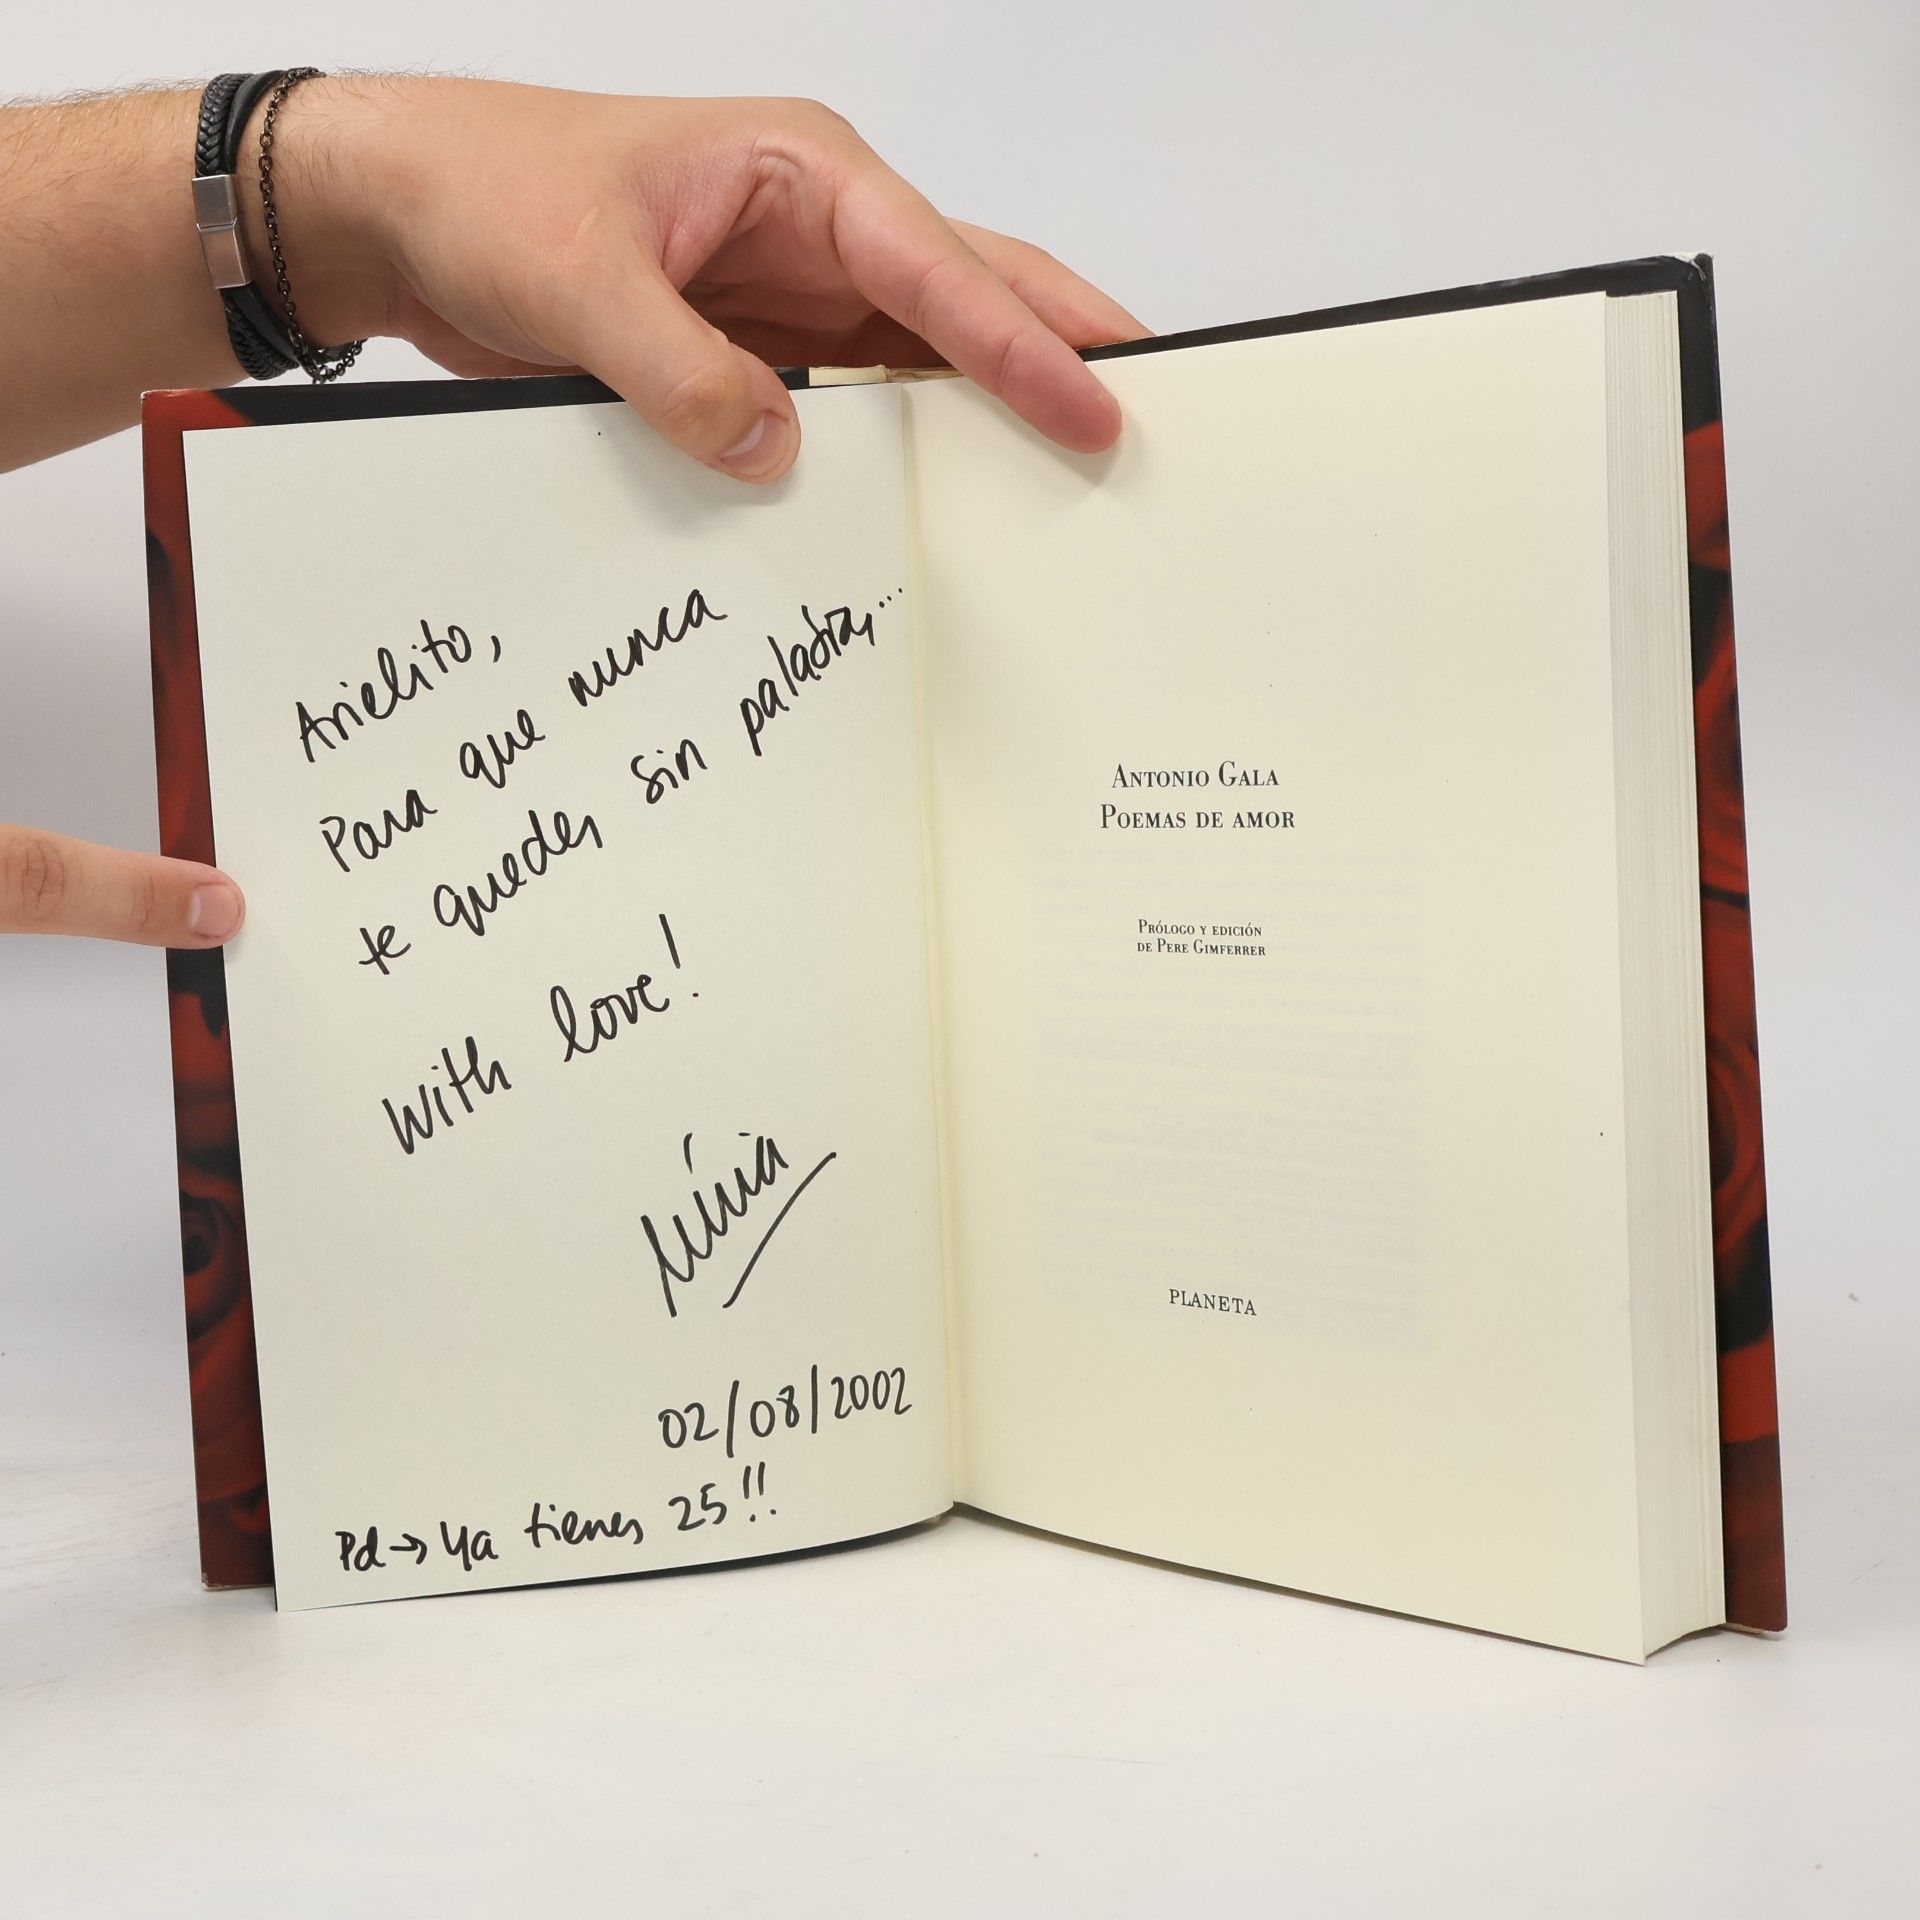 Arielito,
Para que nunca
te quedes sin palabras...
With love!
02/08/2002
Pd → Ya tienes 25!!
ANTONIO GALA
POEMAS DE AMOR
PRÓLOGO Y EDICIÓN
DE PERE GIMFERRER
PLANETA